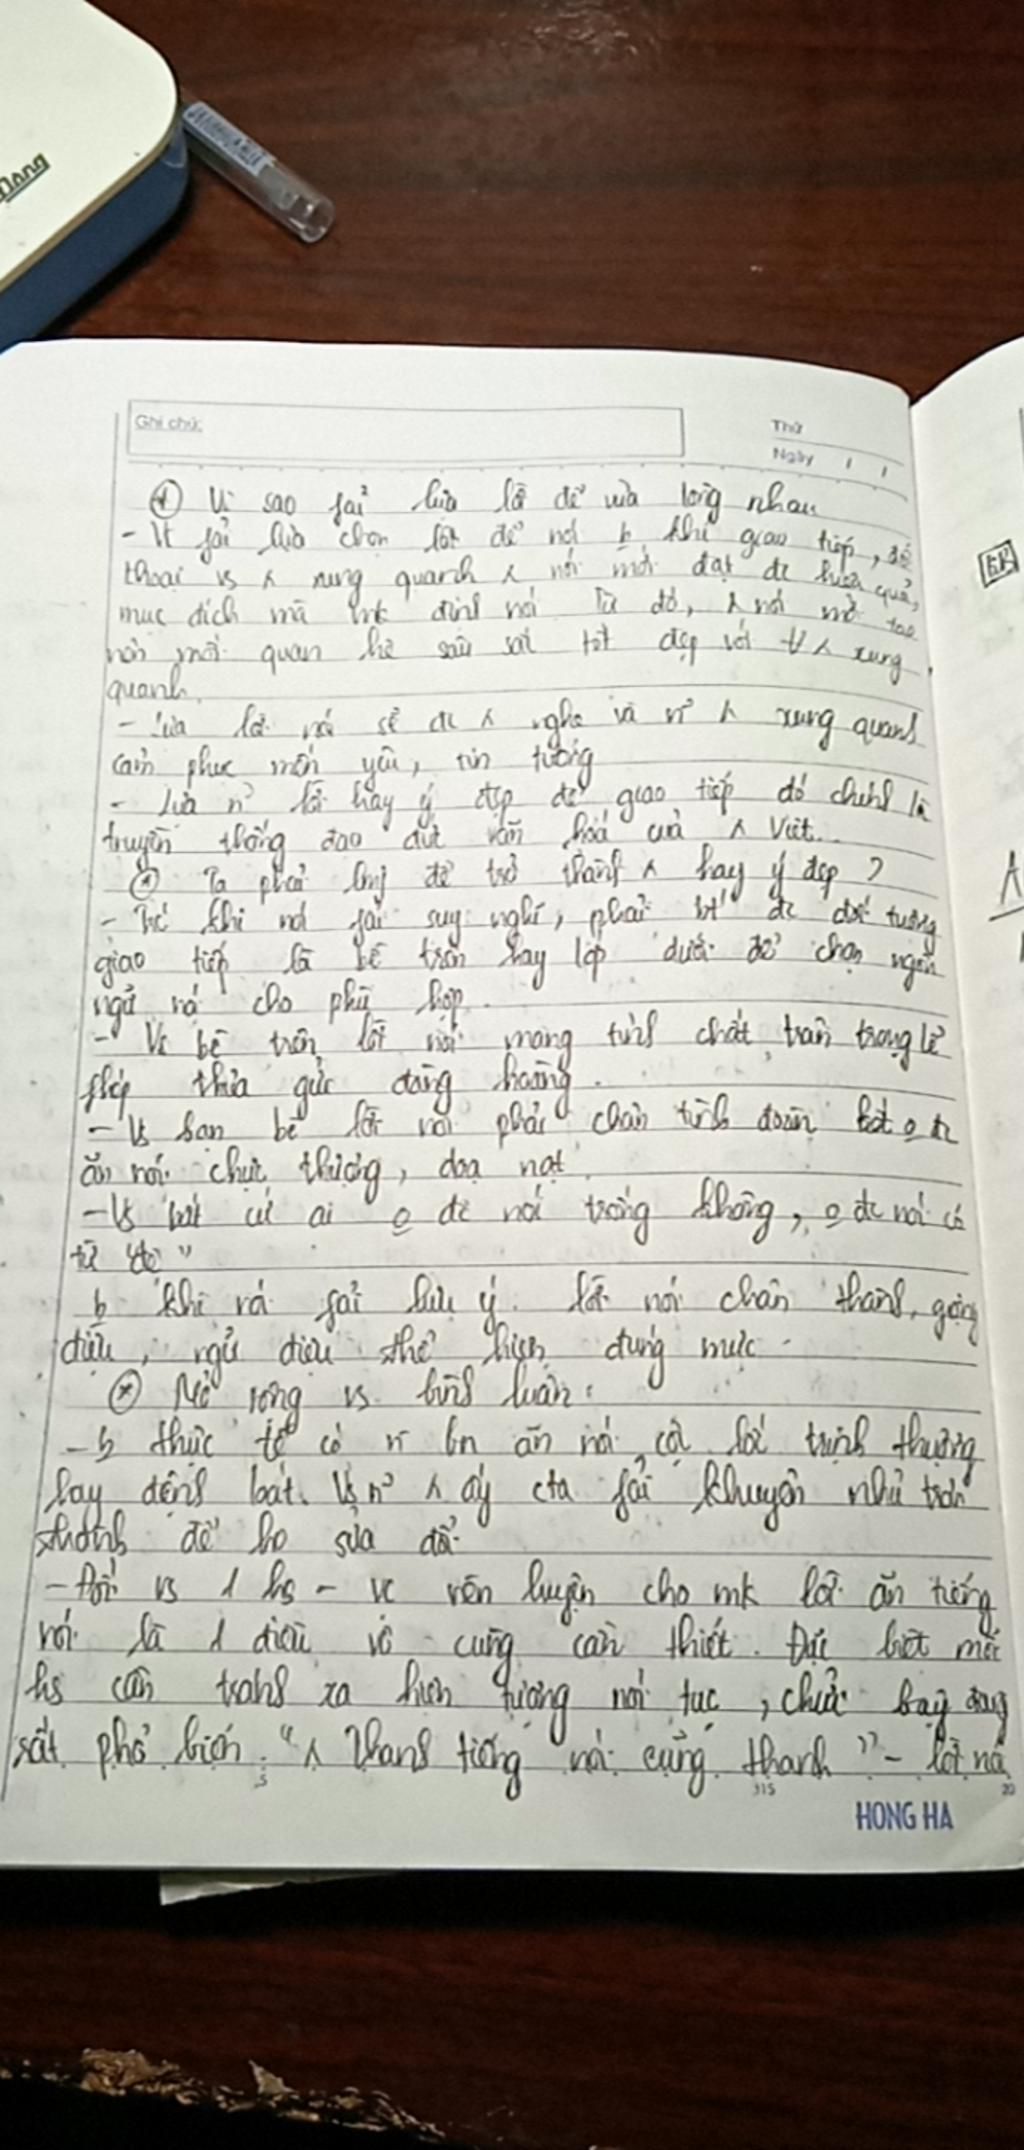 Ghi chú:
Thứ
Ngày / /
* Vì sao fải lựa lời để vừa lòng nhau
- Vì fải lựa chọn lời để nói b khi giao tiếp, đối
thoại vs ⅄ xung quanh ⅄ nói mới đạt đc hiệu quả,
mục đích mà mk định nói Từ đó, ⅄ nói mở tạo
nên mối quan hệ sâu sắc tốt đẹp với ⅄ xung
quanh.
- Lựa lời nói sẽ đc ⅄ nghe và n ⅄ xung quanh
cảm phục mến yêu, tin tưởng
- Lựa n lời hay ý đẹp để giao tiếp đó chính là
truyền thống đạo đức văn hoá của ⅄ Việt..
* Ta phải lmj để trở thành ⅄ hay ý đẹp ?
- Trc khi nói fải suy nghĩ, phải bt đc đối tượng
giao tiếp là bề trên hay lớp dưới để chọn ngôn
ngữ nói cho phù hợp.
- Vs bề trên lời nói mang tính chất trân trọng lễ
phép thưa gửi đàng hoàng.
- Vs bạn bè lời nói phải chân tình đoàn kết o đc
ăn nói chực thượng, doạ nạt
- Vs bất cứ ai o đc nói trống không, o đc nói có
từ "đé"
b khi nói fải lưu ý. lời nói chân thành, giọng
điệu, ngữ điệu thể hiện đúng mực.
* Mở rộng vs bình luận:
- b thực tế có n bn ăn nói cộc lốc trịnh thượng
hay đểnh bát. Vs n ⅄ ấy cta fải khuyên nhủ
thành để họ sửa đổi
- Đối vs 1 hs - vc rèn luyện cho mk lời ăn tiếng
nói là 1 điều vô cùng cần thiết. Đặc biệt mỗi
hs cần tránh xa hiện tượng nói tục, chửi bậy đang
rất phổ biến. "⅄ thanh tiếng nói cũng thanh" - lời nói
5 315 20
HONG HA